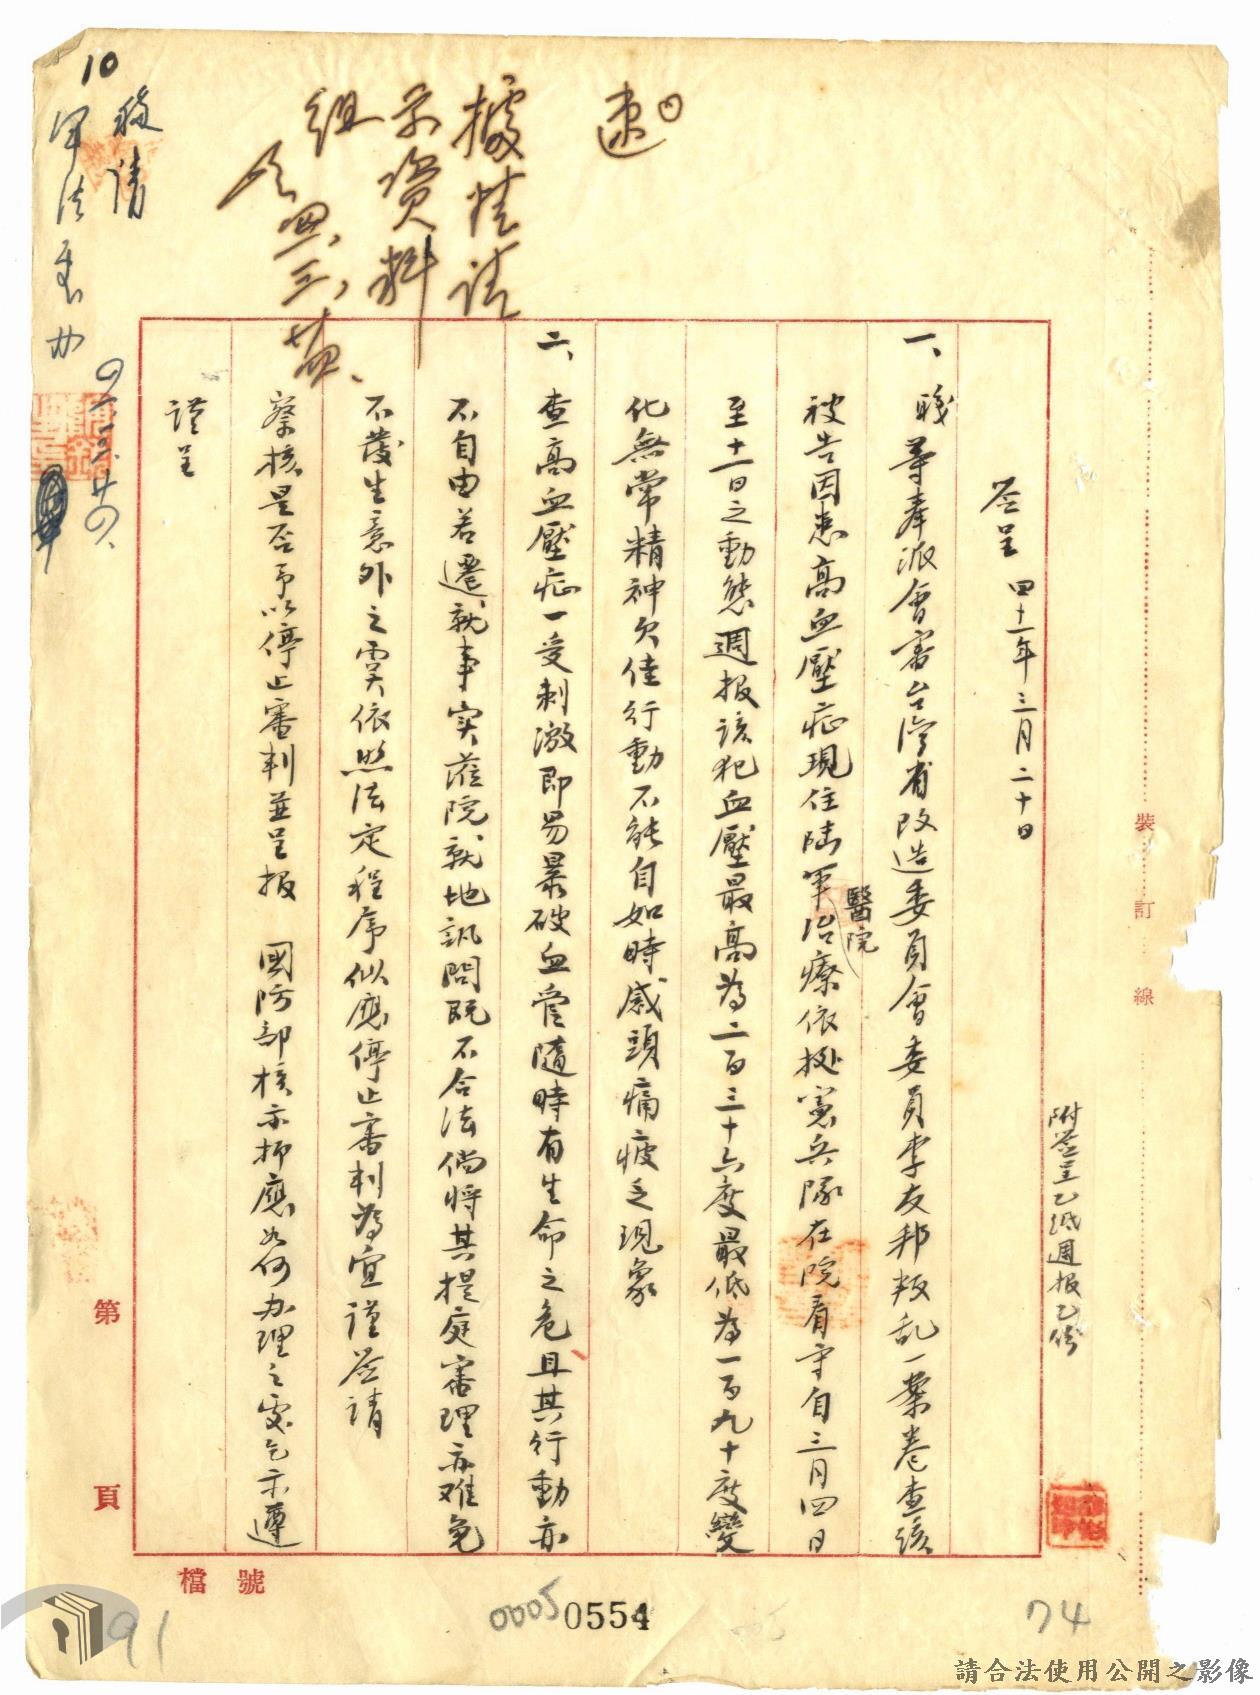 簽呈 四十一年三月二十日
一、職等奉派會審台灣省改造委員會委員李友邦叛乱一案卷查該
被告因患高血壓症現住陸軍醫院治療依據憲兵隊在院看守自三月四日
至十一日之動態週报該犯血壓最高為二百三十六度最低為一百九十度變
化無常精神欠佳行動不能自如時感頭痛疲乏現象
二、查高血壓症一受刺激即易暴破血管隨時有生命之危且其行動亦
不自由若遷就事实蒞院就地訊問既不合法倘將其提庭審理亦难免
不發生意外之虞依照法定程序似應停止審判為宜謹簽請
察核是否予以停止審判並呈报 國防部核示抑應如何办理之處乞示遵
謹呈
附簽呈乙紙週报乙份
速
據情請
示資料
組
三、廿四、
10
擬請
軍法處办
裝訂線
第 頁
檔號
0005
0554
74
91
請合法使用公開之影像